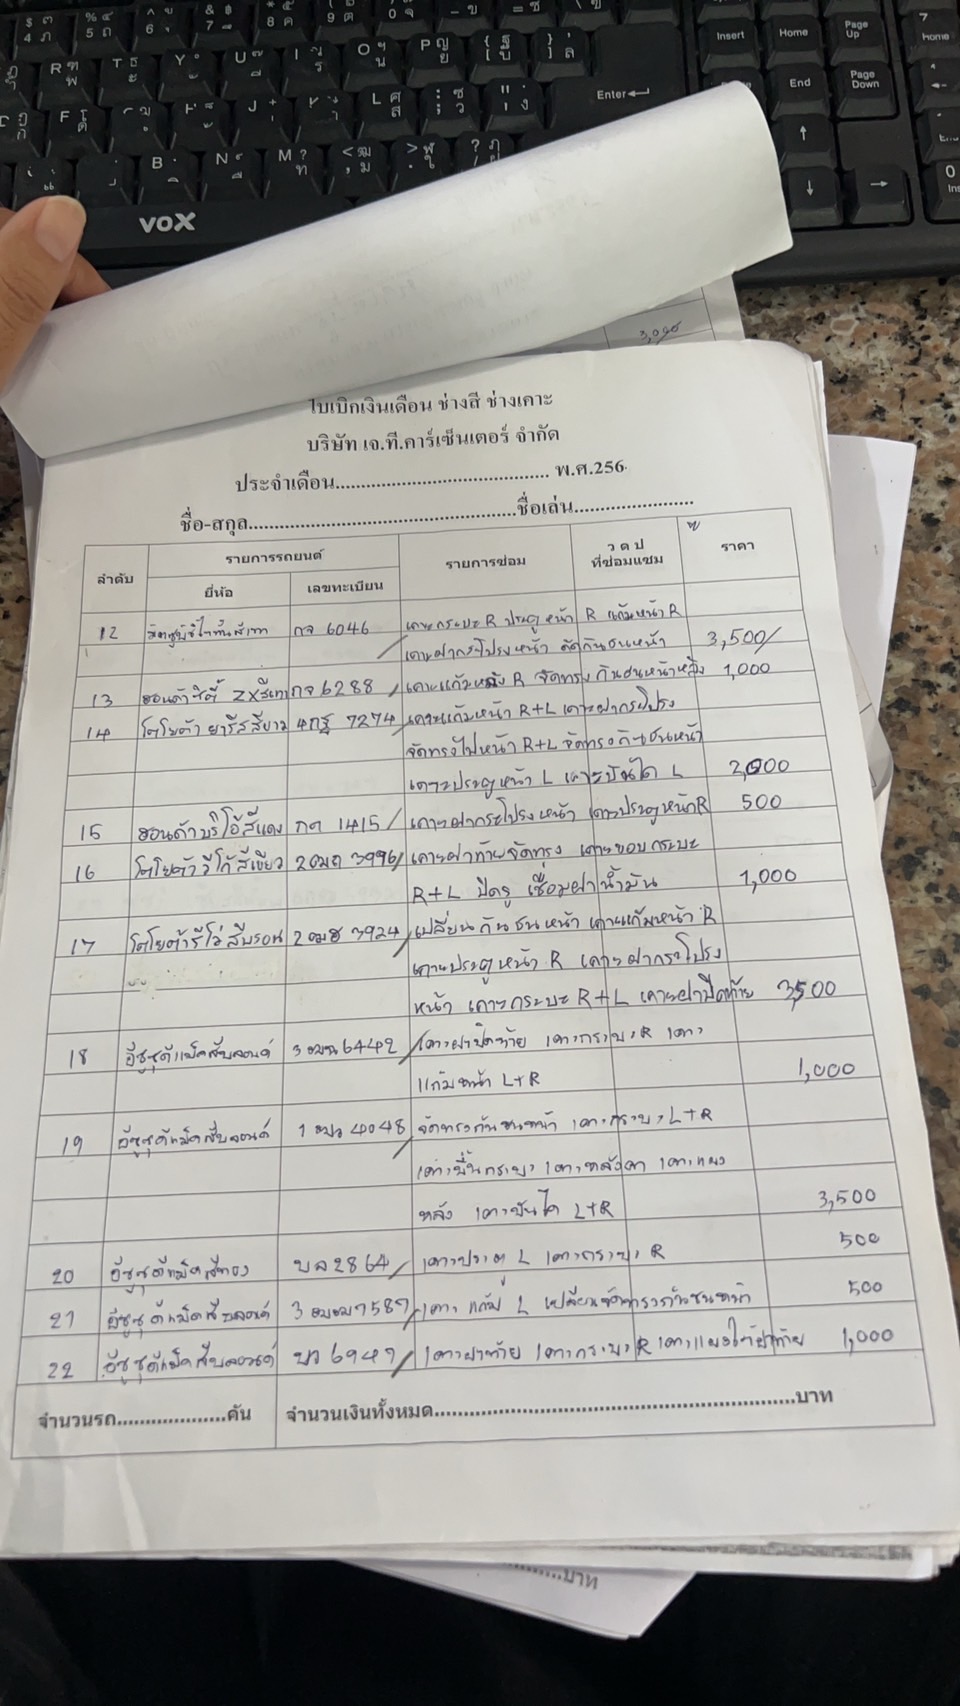 VOX
Enter
Insert
Home
Page Up
End
Page Down
3,000
ใบเบิกเงินเดือน ช่างสี ช่างเคาะ
บริษัท เจ.ที.คาร์เซ็นเตอร์ จำกัด
ประจำเดือน.......................................... พ.ศ.256
ชื่อ-สกุล....................................................ชื่อเล่น.......................
ลำดับ รายการรถยนต์ รายการซ่อม ว ด ป ที่ซ่อมแซม ราคา
ยี่ห้อ เลขทะเบียน
12 มิตซูบิชิไททันสีเทา กจ 6046 / เคาะกระบะ R ประตูหน้า R แก้มหน้า R
เคาะฝากระโปรงหน้า ดัดกันชนหน้า 3,500/
13 ฮอนด้าซิตี้ ZX สีเทา กจ 6288 / เคาะแก้มหลัง R จัดทรงกันชนหน้าหลัง 1,000
14 โตโยต้า ยารีสสีขาว 4กฐ 7274 / เคาะแก้มหน้า R+L เคาะฝากระโปรง
จัดทรงไฟหน้า R+L จัดทรงกันชนหน้า
เคาะประตูหน้า L เคาะบันได L 2,000
15 ฮอนด้าบริโอ้สีแดง กต 1415 / เคาะฝากระโปรงหน้า เคาะประตูหน้า R 500
16 โตโยต้าวีโก้สีเขียว 2ฒถ 3996 / เคาะฝาท้ายจัดทรง เคาะขอบกระบะ
R+L ปิดรู เชื่อมฝาน้ำมัน 1,000
17 โตโยต้ารีโว่สีบรอน 2ฒธ 3924 / เปลี่ยนกันชนหน้า เคาะแก้มหน้า R
เคาะประตูหน้า R เคาะฝากระโปรง
หน้า เคาะกระบะ R+L เคาะฝาปิดท้าย 3,500
18 อีซูซุดีแม็คสีบลอนด์ 3ฒฉ 6442 / เคาะฝาปิดท้าย เคาะกระบะ R เคาะ
แก้มหน้า L+R 1,000
19 อีซูซุดีแม็คสีบลอนด์ 1ฒว 4048 / จัดทรงกันชนหน้า เคาะกระบะ L+R
เคาะพื้นกระบะ เคาะหลังคา เคาะแผง
หลัง เคาะบันได L+R 3,500
20 อีซูซุดีแม็คสีทอง บล 2864 / เคาะประตู L เคาะกระบะ R 500
21 อีซูซุดีแม็คสีบลอนด์ 3ฒฒ 7587 / เคาะแก้ม L เปลี่ยนจัดทรงกันชนหน้า 500
22 อีซูซุดีแม็คสีบลอนด์ บว 6947 / เคาะฝาท้าย เคาะกระบะ R เคาะแผงใต้ฝาท้าย 1,000
จำนวนรถ...................คัน จำนวนเงินทั้งหมด..............................................................บาท
.........บาท